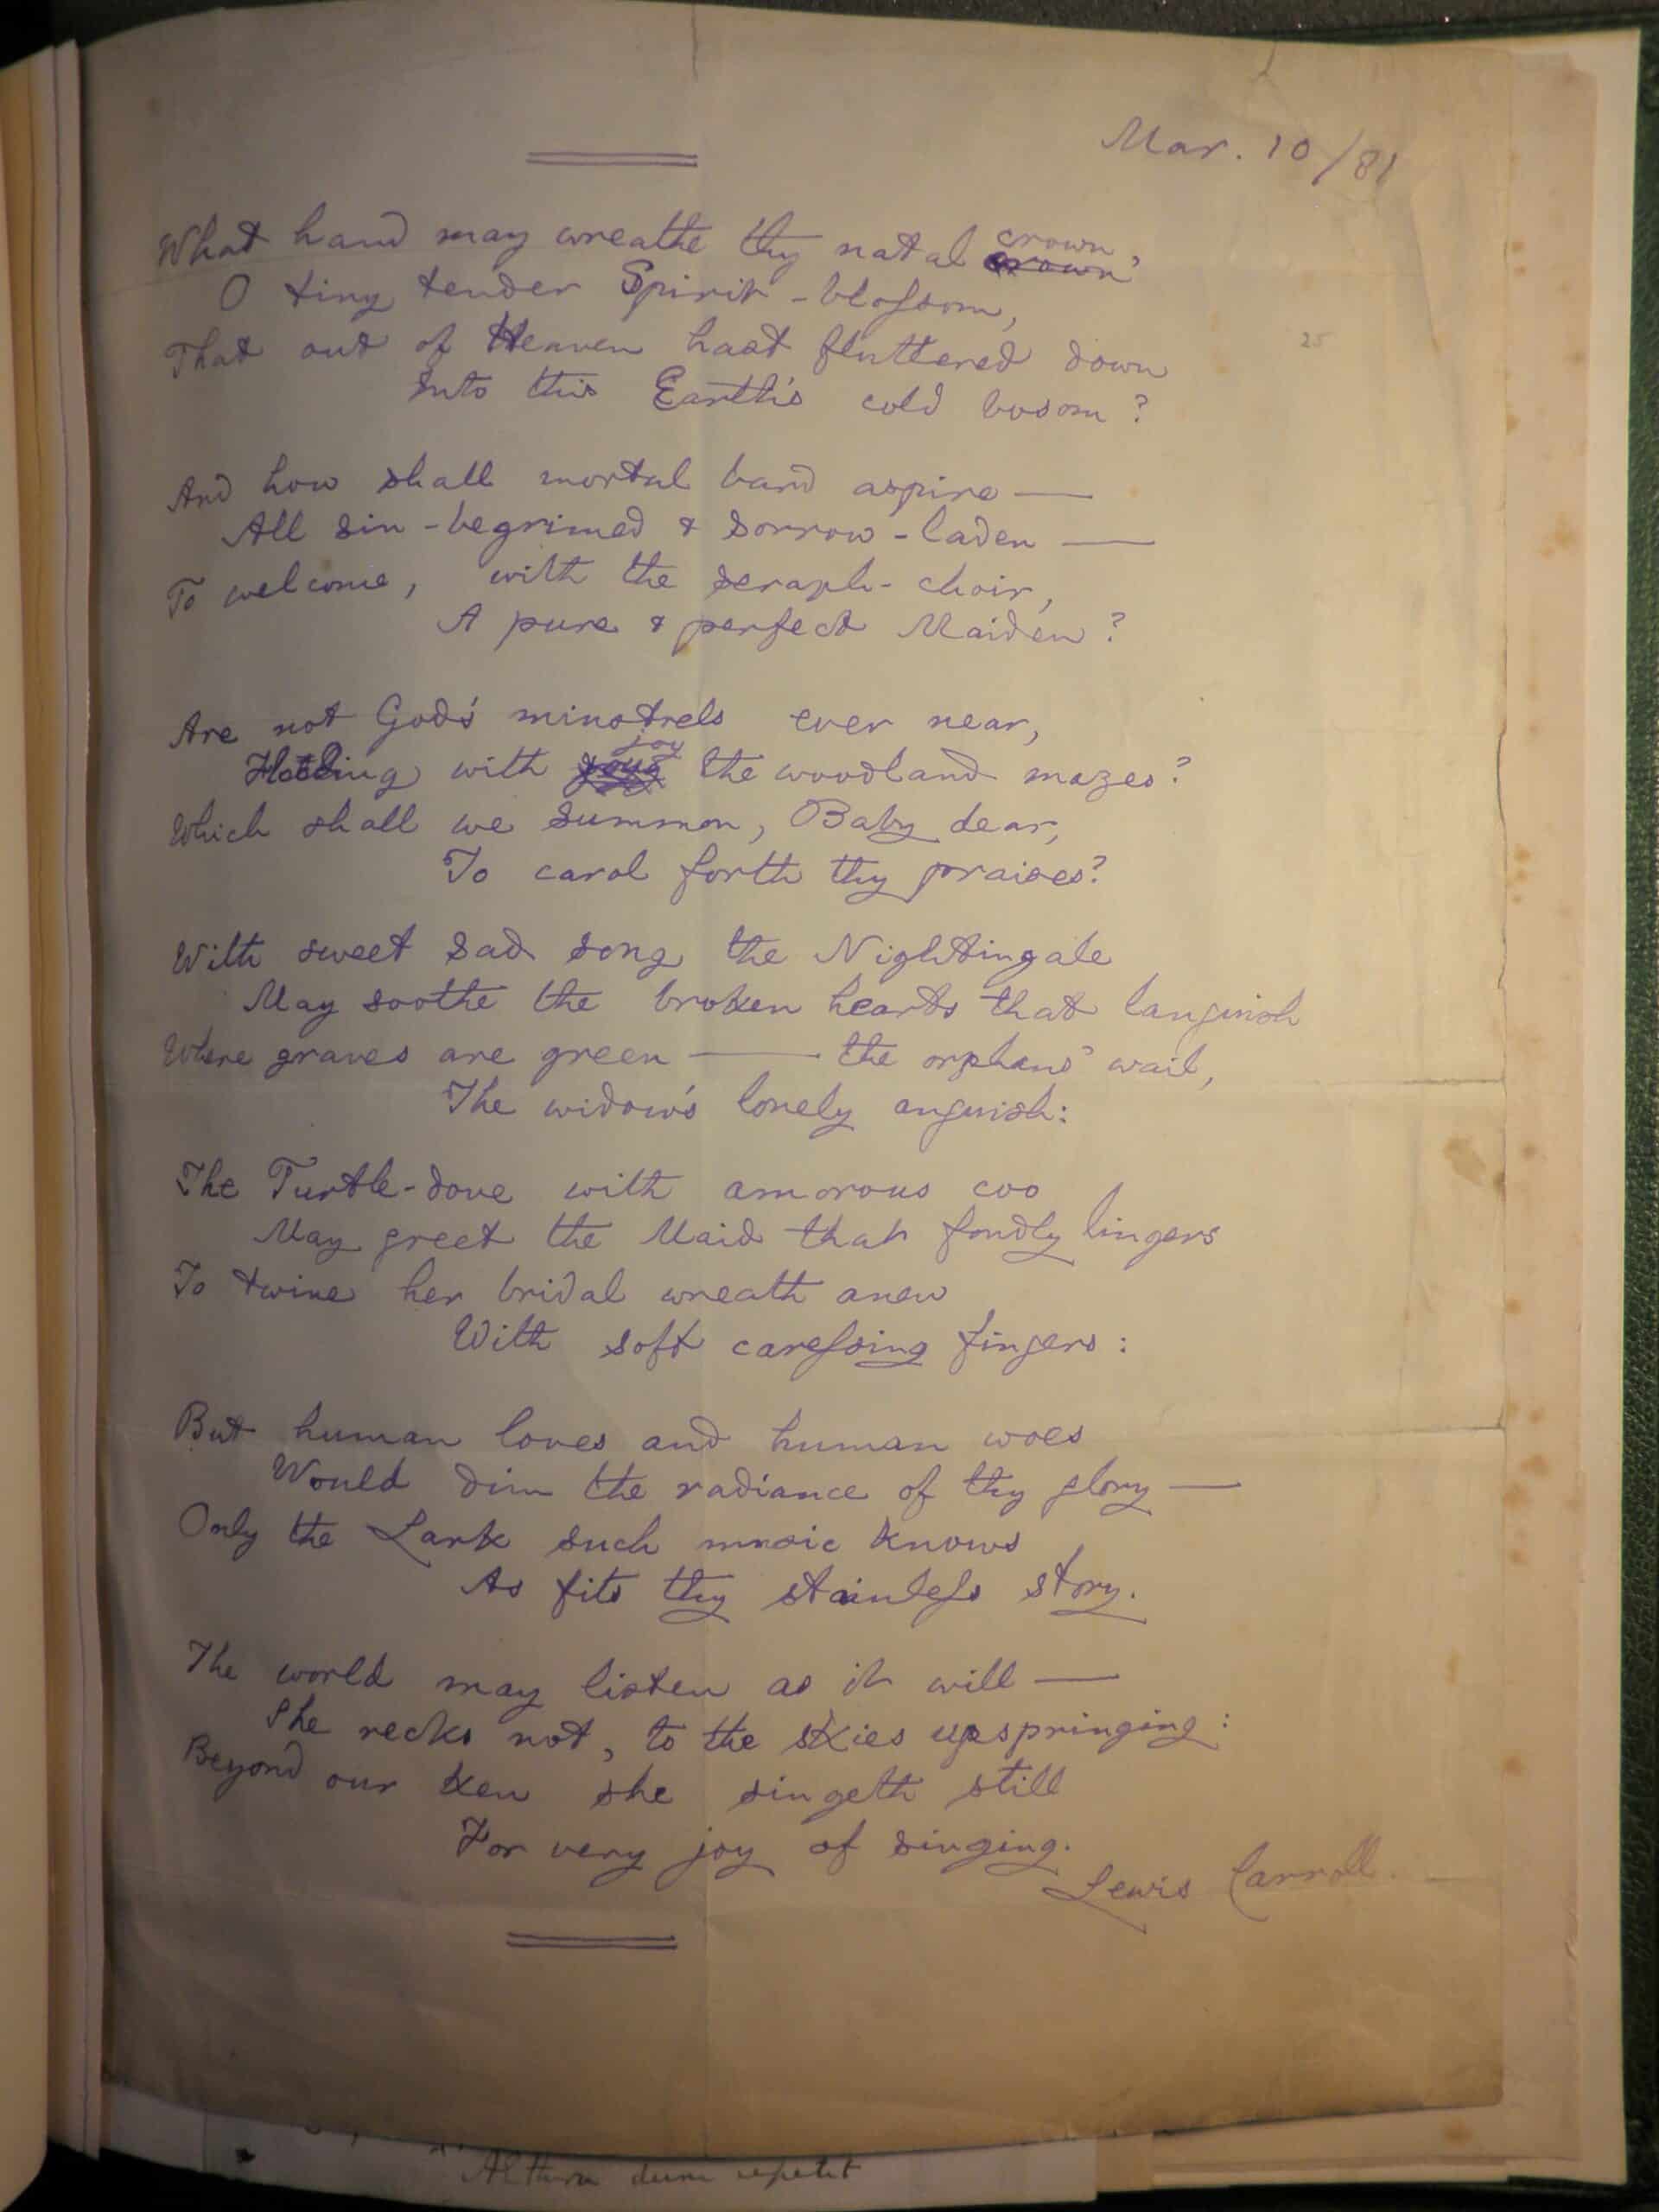 Mar. 10/81
What hand may wreathe thy natal crown,
O tiny tender Spirit-blossom,
That out of Heaven hast fluttered down
Into this Earth's cold bosom?
And how shall mortal bard aspire —
All sin-begrimed & sorrow-laden —
To welcome, with the seraph-choir,
A pure & perfect Maiden?
Are not God's minstrels ever near,
Flooding with joy the woodland mazes?
Which shall we summon, Baby dear,
To carol forth thy praises?
With sweet sad song the Nightingale
May soothe the broken hearts that languish
Where graves are green — the orphans' wail,
The widow's lonely anguish:
The Turtle-dove with amorous coo
May greet the Maid that fondly lingers
To twine her bridal wreath anew
With soft caressing fingers:
But human loves and human woes
Would dim the radiance of thy glory —
Only the Lark such music knows
As fits thy stainless story.
The world may listen as it will —
She recks not, to the skies upspringing:
Beyond our ken she singeth still
For very joy of singing.
Lewis Carroll.
25
dum repetit